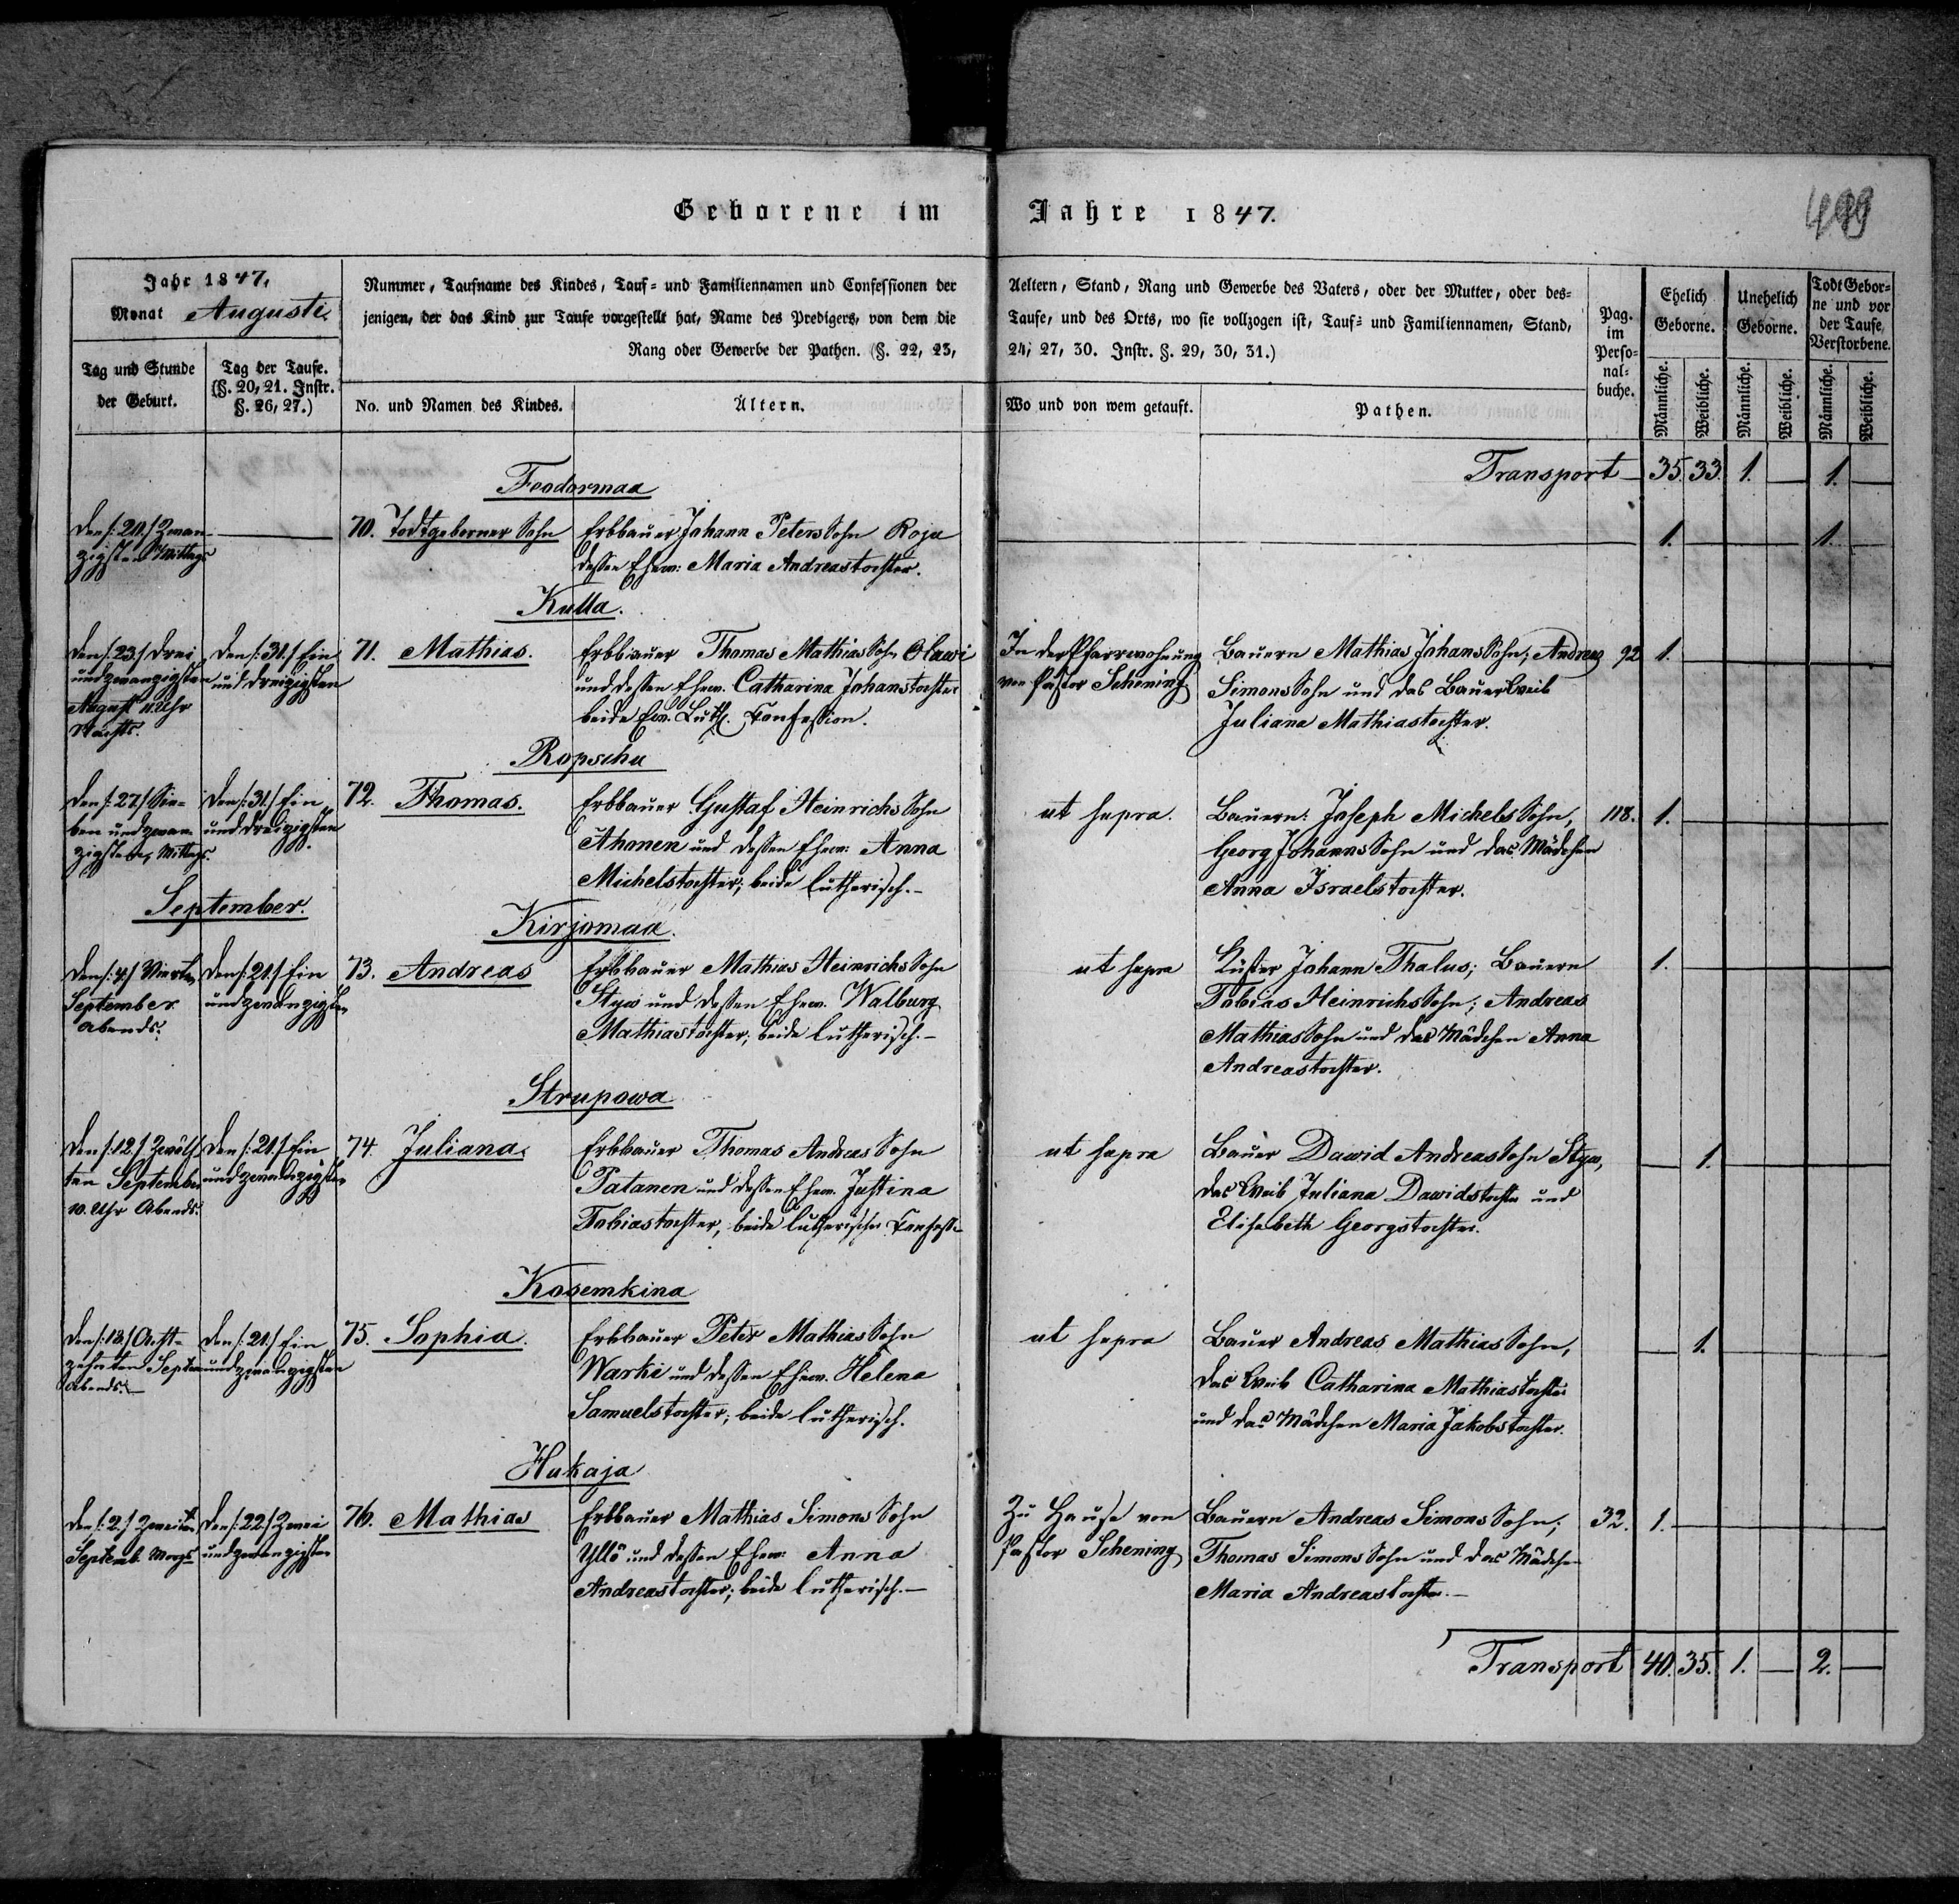 Geborene im Jahre 1847.
499
Jahr 1847.
Monat Augusti.
Nummer, Taufname des Kindes, Tauf- und Familiennamen und Confessionen der Aeltern, Stand, Rang und Gewerbe des Vaters, oder der Mutter, oder des-
jenigen, der das Kind zur Taufe vorgestellt hat, Name des Predigers, von dem die Taufe, und des Orts, wo sie vollzogen ist, Tauf- und Familiennamen, Stand,
Rang oder Gewerbe der Pathen. (§. 22, 23, 24, 27, 30. Instr. §. 29, 30, 31.)
Tag und Stunde der Geburt.
Tag der Taufe. (§. 20, 21. Instr. §. 26, 27.)
No. und Namen des Kindes.
Ältern.
Wo und von wem getauft.
Pathen.
Pag. im Perso-nal-buche.
Ehelich Geborne.
Unehelich Geborne.
Todt Gebor-ne und vor der Taufe Verstorbene.
Männliche. Weibliche. Männliche. Weibliche. Männliche. Weibliche.
Transport 35. 33. 1. — 1. —
Feodormaa
den /:20./ Zwan-
zigsten Mittags
70. Todtgeborner Sohn
Erbbauer Johann Peters Sohn Roju
dessen Ehew: Maria Andreastochter.
1. 1.
Kulla.
den /:23./ Drei
und zwanzigsten
August 11. Uhr
Nachts.
den /:31./ Ein
und dreizigsten
71. Mathias.
Erbbauer Thomas Mathias Sohn Olawi
und dessen Ehew. Catharina Johanstochter
beide Ew. Luth. Confession.
In der Pfarrwohnung
von Pastor Schening
Bauern Mathias Johans Sohn, Andreas
Simons Sohn und das Bauer Weib
Juliana Mathiastochter.
92 1.
Ropschu
den /:27./ Sie-
ben und zwan-
zigsten, Mittags.
den /:31./ Ein
und dreizigsten
72. Thomas.
Erbbauer Gustaf Heinrichs Sohn
Ahonen und dessen Ehew: Anna
Michelstochter; beide lutherisch.-
ut supra.
Bauern: Joseph Michels Sohn,
Georg Johanns Sohn und das Mädchen
Anna Israelstochter.
118. 1.
September.
Kirjamaa.
den /:4./ Vierten
September
Abends.
den /:21./ Ein
und zwanzigsten
73. Andreas
Erbbauer Mathias Heinrichs Sohn
Styw und dessen Ehew. Walburg
Mathiastochter; beide lutherisch.-
ut supra
Küster Johann Thalus; Bauern
Tobias Heinrichs Sohn; Andreas
Mathias Sohn und das Mädchen Anna
Andreastochter.
1.
Strupowa
den /:12./ Zwölf
ten September
10. Uhr Abends.
den /:21./ Ein
und zwanzigsten
74. Juliana.
Erbbauer Thomas Andreas Sohn
Patanen und dessen Ehew. Justina
Tobiastochter, beide lutherischer Confess-
ut supra
Bauer Dawid Andreas Sohn Styw,
das Weib Juliana Dawidstochter und
Elisabeth Georgstochter.
1.
Kosemkina
den /:18./ Acht-
zehnten Septem
Abends.
den /:21./ Ein
und zwanzigsten
75. Sophia.
Erbbauer Peter Mathias Sohn
Warki und dessen Ehew. Helena
Samuelstochter; beide lutherisch.
ut supra
Bauer Andreas Mathias Sohn,
das Weib Catharina Mathiastochter
und das Mädchen Maria Jakobstochter.
1.
Hukaja
den /:2./ Zweiten
Septemb. Morgs
den /:22./ Zwei
und zwanzigsten
76. Mathias
Erbbauer Mathias Simons Sohn
Yllö und dessen Ehew: Anna
Andreastochter; beide lutherisch.-
Zu Hause von
Pastor Schening
Bauern Andreas Simons Sohn;
Thomas Simons Sohn und das Mädchen
Maria Andreastochter.-
32. 1.
Transport 40. 35. 1. — 2. —